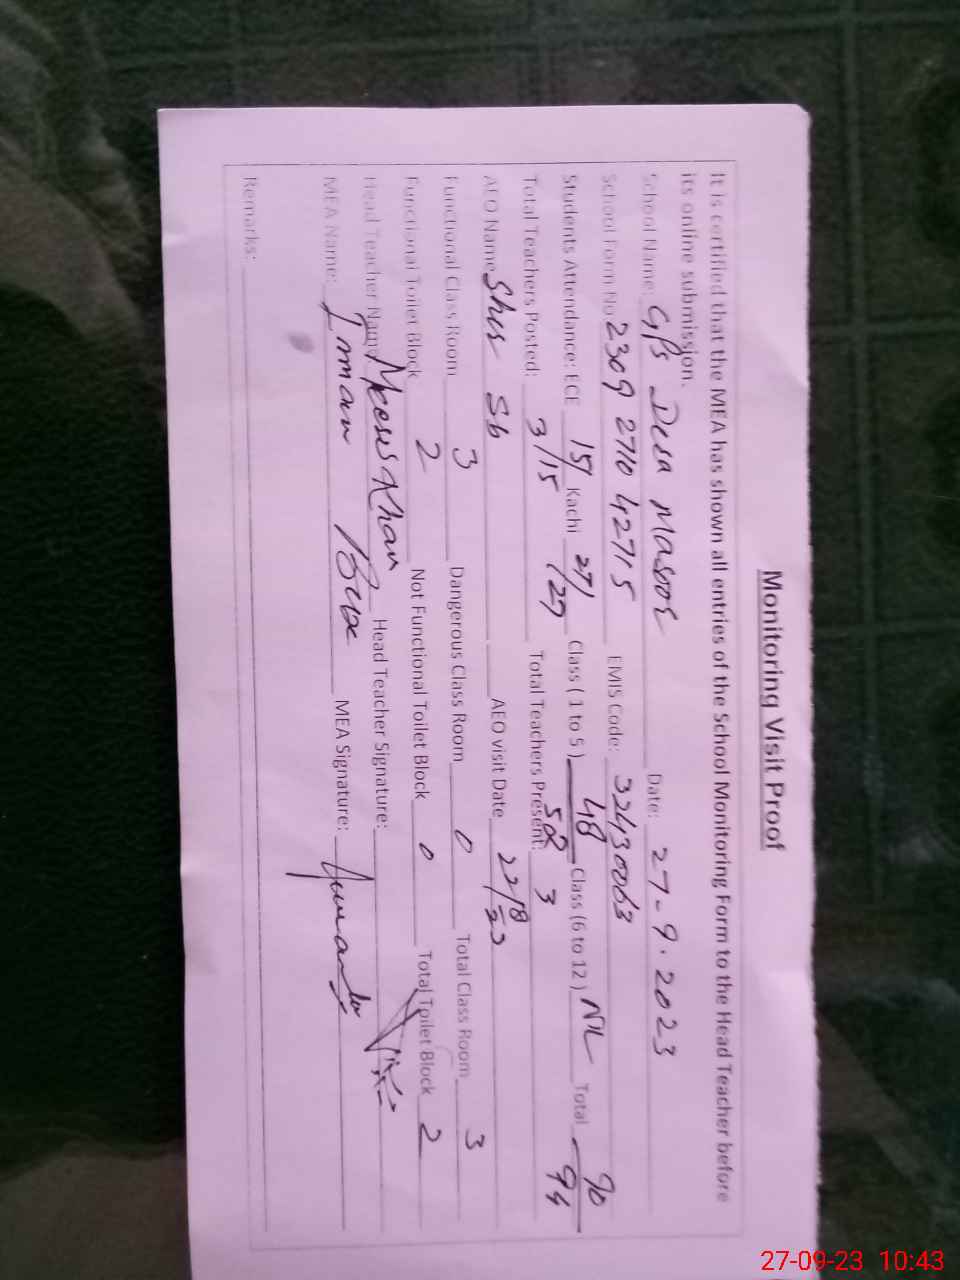 Monitoring Visit Proof
It is certified that the MEA has shown all entries of the School Monitoring Form to the Head Teacher before
its online submission.
School Name: GPS Dera Masoor Date: 27-9.2023
School Form No 2309 2710 42715 EMIS Code: 32430063
Students Attendance: ECE 15/15 Kachi 27/27 Class ( 1 to 5 ) 48/52 Class (6 to 12 ) NIL Total 90/94
Total Teachers Posted: 3 Total Teachers Present: 3
AEO Name Sb AEO visit Date 22/8/23
Functional Class Room 3 Dangerous Class Room 0 Total Class Room 3
Functional Toilet Block 2 Not Functional Toilet Block 0 Total Toilet Block 2
Head Teacher Nam Khan Head Teacher Signature:
MEA Name: Imam Bux MEA Signature:
Remarks:
27-09-23 10:43